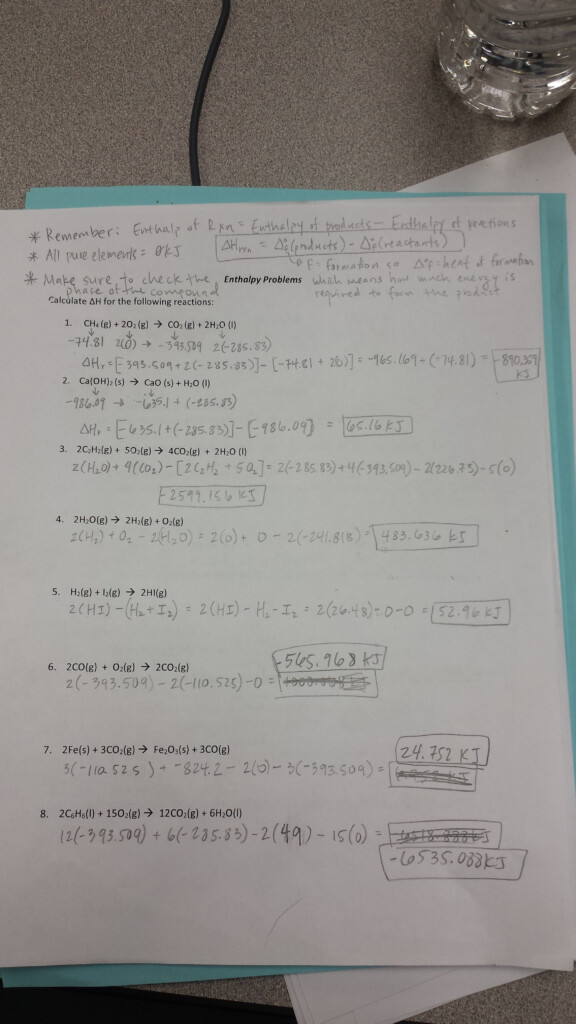 * Remember: Enthalp of Rxn = Enthalpy of products - Enthalpy of reactions
* All pure elements = 0 kJ
ΔHrxn = Δ°f(products) - Δ°f(reactants)
↳ F = formation so Δ°F = heat of formation
* Make sure to check the phase of the compound
Enthalpy Problems
which means how much energy is required to form the product
Calculate ΔH for the following reactions:
1. CH₄(g) + 2O₂(g) → CO₂(g) + 2H₂O (l)
-74.81 2(0) → -393.509 2(-285.83)
ΔHr = [-393.509 + 2(-285.83)] - [-74.81 + 2(0)] = -965.169 - (-74.81) = -890.359 kJ
2. Ca(OH)₂ (s) → CaO (s) + H₂O (l)
-986.09 → -635.1 + (-285.83)
ΔHr = [-635.1 + (-285.83)] - [-986.09] = 65.16 kJ
3. 2C₂H₂(g) + 5O₂(g) → 4CO₂(g) + 2H₂O (l)
2(H₂O) + 4(CO₂) - [2C₂H₂ + 5O₂] = 2(-285.83) + 4(-393.509) - 2(226.73) - 5(0)
-2599.156 kJ
4. 2H₂O(g) → 2H₂(g) + O₂(g)
2(H₂) + O₂ - 2(H₂O) = 2(0) + 0 - 2(-241.818) = 483.636 kJ
5. H₂(g) + I₂(g) → 2HI(g)
2(HI) - (H₂ + I₂) = 2(HI) - H₂ - I₂ = 2(26.48) - 0 - 0 = 52.96 kJ
-565.968 kJ
6. 2CO(g) + O₂(g) → 2CO₂(g)
2(-393.509) - 2(-110.525) - 0 =
7. 2Fe(s) + 3CO₂(g) → Fe₂O₃(s) + 3CO(g)
24.752 KJ
3(-110.525) + -824.2 - 2(0) - 3(-393.509) =
8. 2C₆H₆(l) + 15O₂(g) → 12CO₂(g) + 6H₂O(l)
12(-393.509) + 6(-285.83) - 2(49) - 15(0) =
-6535.088 kJ